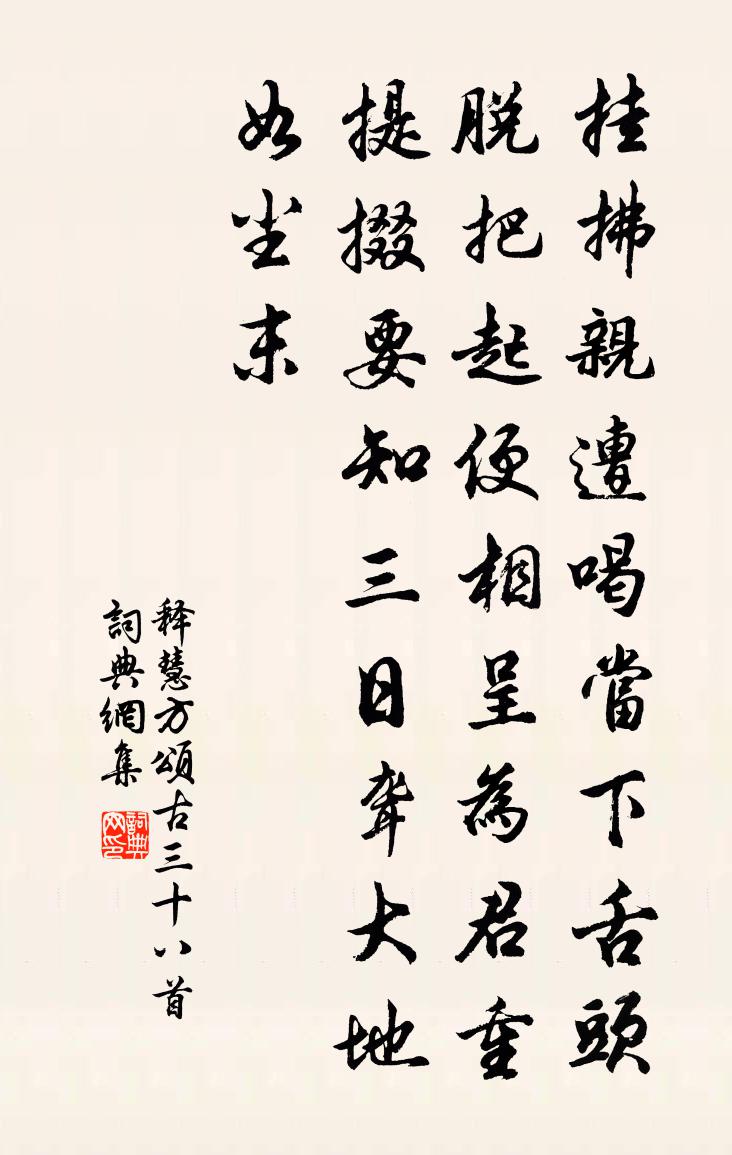 挂拂親遭喝當下舌頭
脱把起便相呈為君重
提掇要知三日聾大地
如尘末
释慧方頌古三十八首
詞典網集
詞典网印